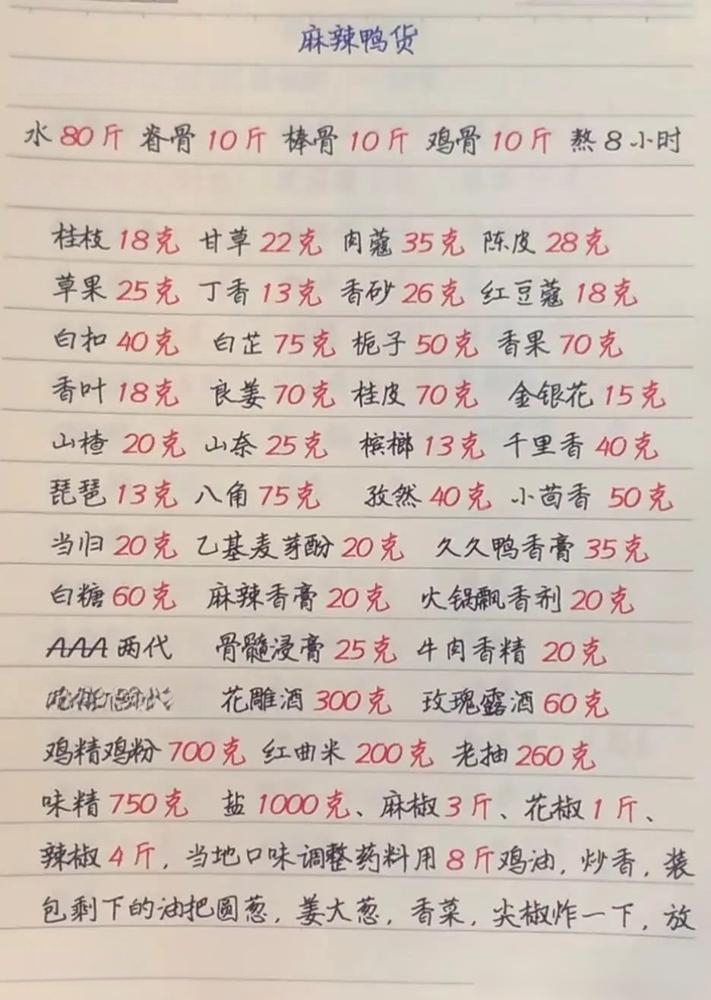 麻辣鸭货
水80斤 脊骨10斤 棒骨10斤 鸡骨10斤 熬8小时
桂枝18克 甘草22克 肉蔻35克 陈皮28克
草果25克 丁香13克 香砂26克 红豆蔻18克
白扣40克 白芷75克 栀子50克 香果70克
香叶18克 良姜70克 桂皮70克 金银花15克
山楂20克 山奈25克 槟榔13克 千里香40克
琵琶13克 八角75克 孜然40克 小茴香50克
当归20克 乙基麦芽酚20克 久久鸭香膏35克
白糖60克 麻辣香膏20克 火锅飘香剂20克
AAA两代 骨髓浸膏25克 牛肉香精20克
花雕酒300克 玫瑰露酒60克
鸡精鸡粉700克 红曲米200克 老抽260克
味精750克 盐1000克、麻椒3斤、花椒1斤、
辣椒4斤，当地口味调整药料用8斤鸡油，炒香，装
包剩下的油把圆葱，姜大葱，香菜，尖椒炸一下，放